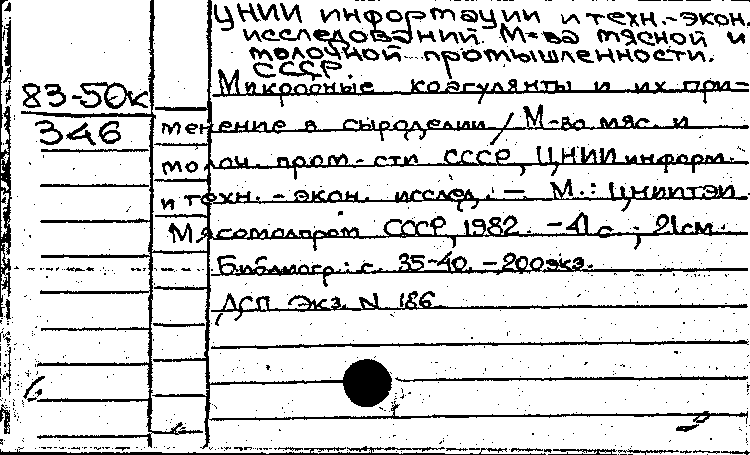 ЦНИИ информации и техн.-экон.
исследований. М-ва мясной и
молочной промышленности.
СССР.
83-50к
346
Микробные коагулянты и их при-
менение в сыроделии / М-во мяс. и
молоч. пром-сти СССР, ЦНИИ информ.
и техн.-экон. исслед. - М.: ЦНИИТЭИ
Мясомолпром СССР, 1982. - 41 с.; 21 см.
Библиогр.: с. 35-40. - 200 экз.
ДСП Экз. N 186.